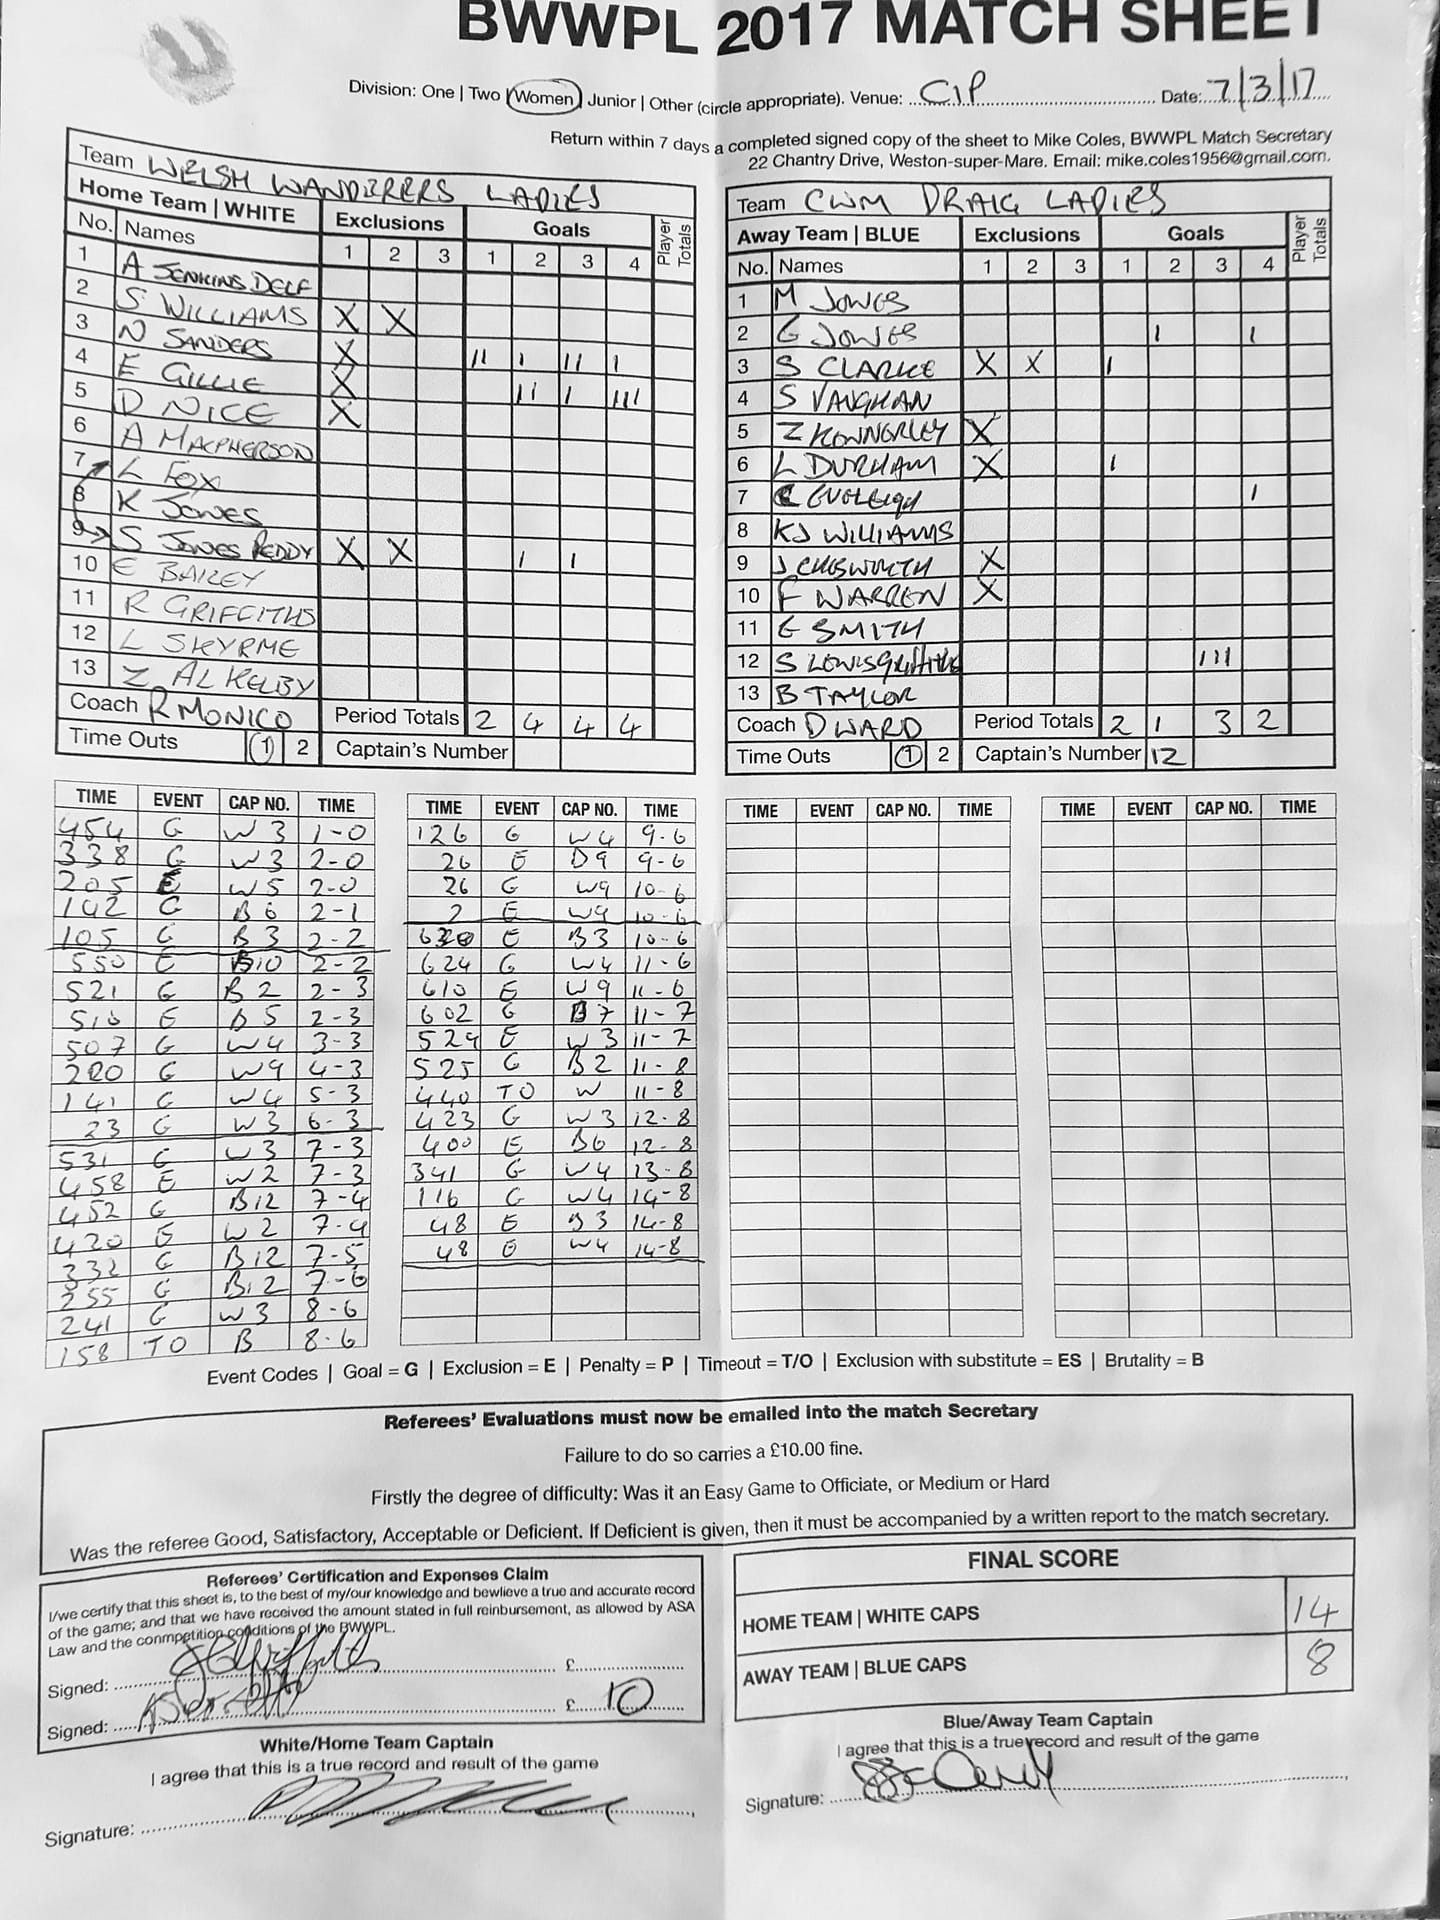 BWWPL 2017 MATCH SHEET
Division: One | Two | Women | Junior | Other (circle appropriate). Venue: CIP Date: 7/3/17
Return within 7 days a completed signed copy of the sheet to Mike Coles, BWWPL Match Secretary
22 Chantry Drive, Weston-super-Mare. Email: mike.coles1956@gmail.com.
Team WELSH WANDERERS LADIES
Home Team | WHITE Exclusions Goals Player Totals
No. Names 1 2 3 1 2 3 4
1 A JENKINS DELF
2 S WILLIAMS X X
3 N SANDERS X II I II I
4 E GILLIE X II I III
5 D NICE X
6 A MACPHERSON
7 L FOX
8 K JONES
9 S JONES REDDY X X I I
10 E BAILEY
11 R GRIFFITHS
12 L SKYRME
13 Z AL KELBY
Coach R MONICO Period Totals 2 4 4 4
Time Outs 1 2 Captain's Number
Team CWM DRAIG LADIES
Away Team | BLUE Exclusions Goals Player Totals
No. Names 1 2 3 1 2 3 4
1 M JONES
2 G JONES I I
3 S CLARKE X X I
4 S VAUGHAN
5 Z X
6 L DURHAM X I
7 I
8 KJ WILLIAMS
9 J X
10 F WARREN X
11 E SMITH
12 S LEWIS Griffiths III
13 B TAYLOR
Coach D WARD Period Totals 2 1 3 2
Time Outs 1 2 Captain's Number 12
TIME EVENT CAP NO. TIME
454 G W3 1-0
338 G W3 2-0
205 E W5 2-0
142 G B6 2-1
105 G B3 2-2
550 E B10 2-2
521 G B2 2-3
510 E B5 2-3
507 G W4 3-3
220 G W9 4-3
141 G W4 5-3
23 G W3 6-3
531 G W3 7-3
458 E W2 7-3
452 G B12 7-4
420 E W2 7-4
332 G B12 7-5
255 G B12 7-6
241 G W3 8-6
158 TO B 8-6
TIME EVENT CAP NO. TIME
126 G W4 9-6
26 E B9 9-6
26 G W9 10-6
2 E W9 10-6
630 E B3 10-6
624 G W4 11-6
610 E W9 11-6
602 G B7 11-7
529 E W3 11-7
525 G B2 11-8
440 TO W 11-8
423 G W3 12-8
400 E B6 12-8
341 G W4 13-8
116 G W4 14-8
48 E B3 14-8
48 E W4 14-8
TIME EVENT CAP NO. TIME
TIME EVENT CAP NO. TIME
Event Codes | Goal = G | Exclusion = E | Penalty = P | Timeout = T/O | Exclusion with substitute = ES | Brutality = B
Referees' Evaluations must now be emailed into the match Secretary
Failure to do so carries a £10.00 fine.
Firstly the degree of difficulty: Was it an Easy Game to Officiate, or Medium or Hard
Was the referee Good, Satisfactory, Acceptable or Deficient. If Deficient is given, then it must be accompanied by a written report to the match secretary.
Referees' Certification and Expenses Claim
I/we certify that this sheet is, to the best of my/our knowledge and bewlieve a true and accurate record
of the game; and that we have received the amount stated in full reinbursement, as allowed by ASA
Law and the conmpetition conditions of the BWWPL.
Signed: £
Signed: £ 10
White/Home Team Captain
I agree that this is a true record and result of the game
Signature:
FINAL SCORE
HOME TEAM | WHITE CAPS 14
AWAY TEAM | BLUE CAPS 8
Blue/Away Team Captain
I agree that this is a true record and result of the game
Signature: